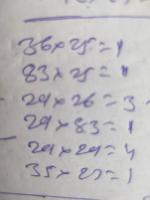 36×25=1
83×25=1
24×26=3
24×83=1
24×24=4
35×23=1